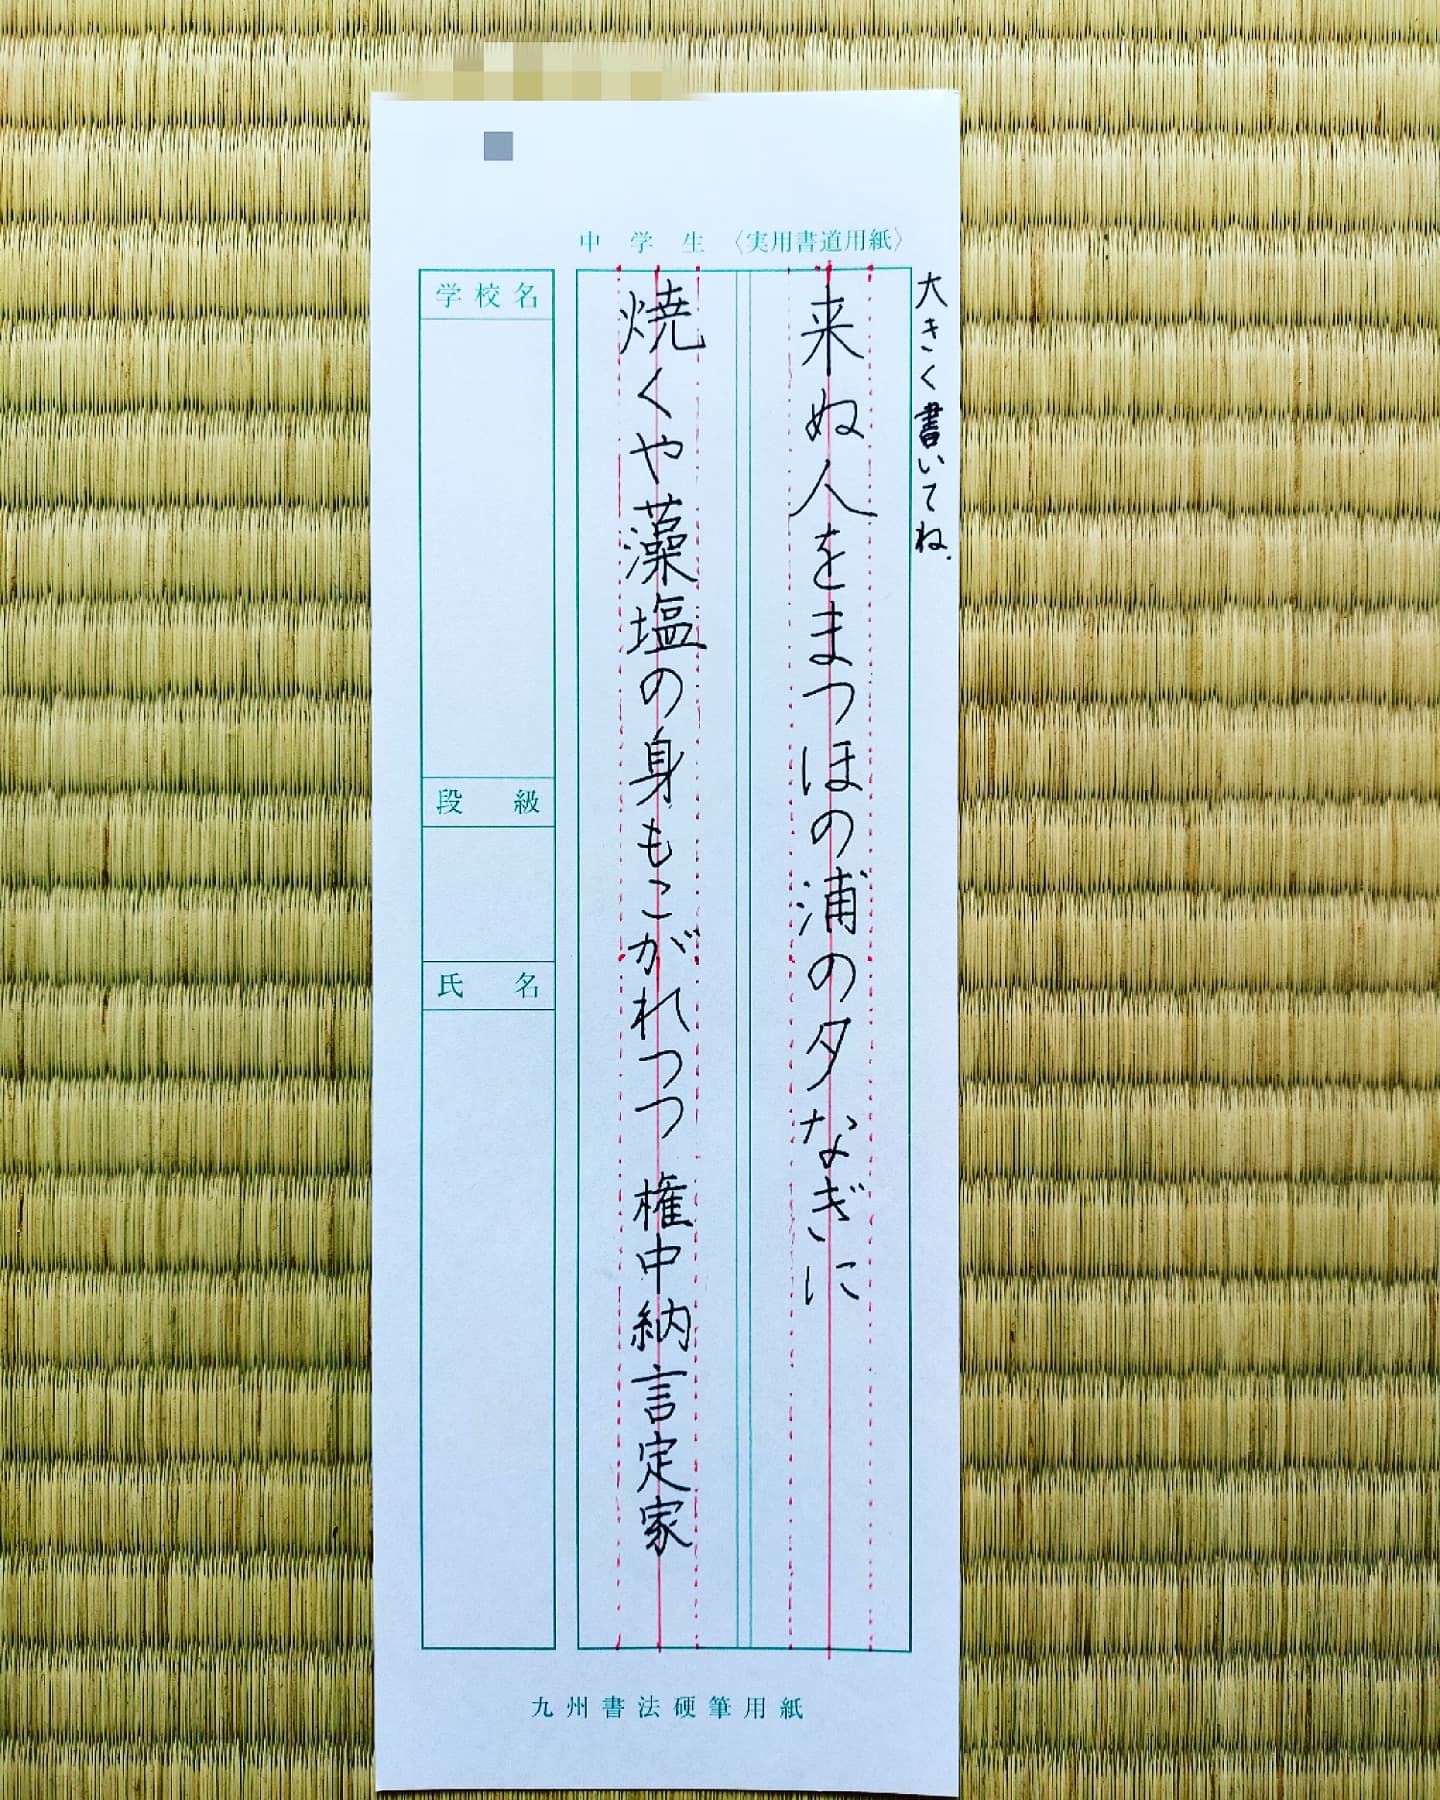 中学生〈実用書道用紙〉
大きく書いてね.
来ぬ人をまつほの浦の夕なぎに
焼くや藻塩の身もこがれつつ 権中納言定家
学校名
段級
氏名
九州書法硬筆用紙